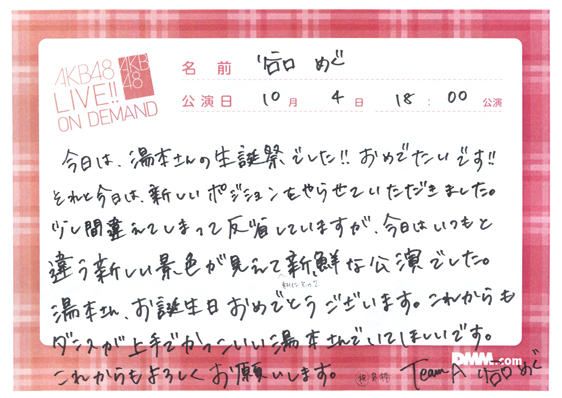 AKB48
LIVE!!
ON DEMAND
AKB
48
名前 谷口 めぐ
公演日 10月 4日 18:00 公演
今日は、湯本さんの生誕祭でした!! おめでたいです!!
それと今日は、新しいポジションをやらせていただきました。
少し間違えてしまって反省していますが、今日はいつもと
違う新しい景色が見えて新鮮な公演でした。
私にとって
湯本さん、お誕生日おめでとうございます。これからも
ダンスが上手でかっこいい湯本さんでいてほしいです。
これからもよろしくお願いします。
Team A 谷口 めぐ
DMM.com